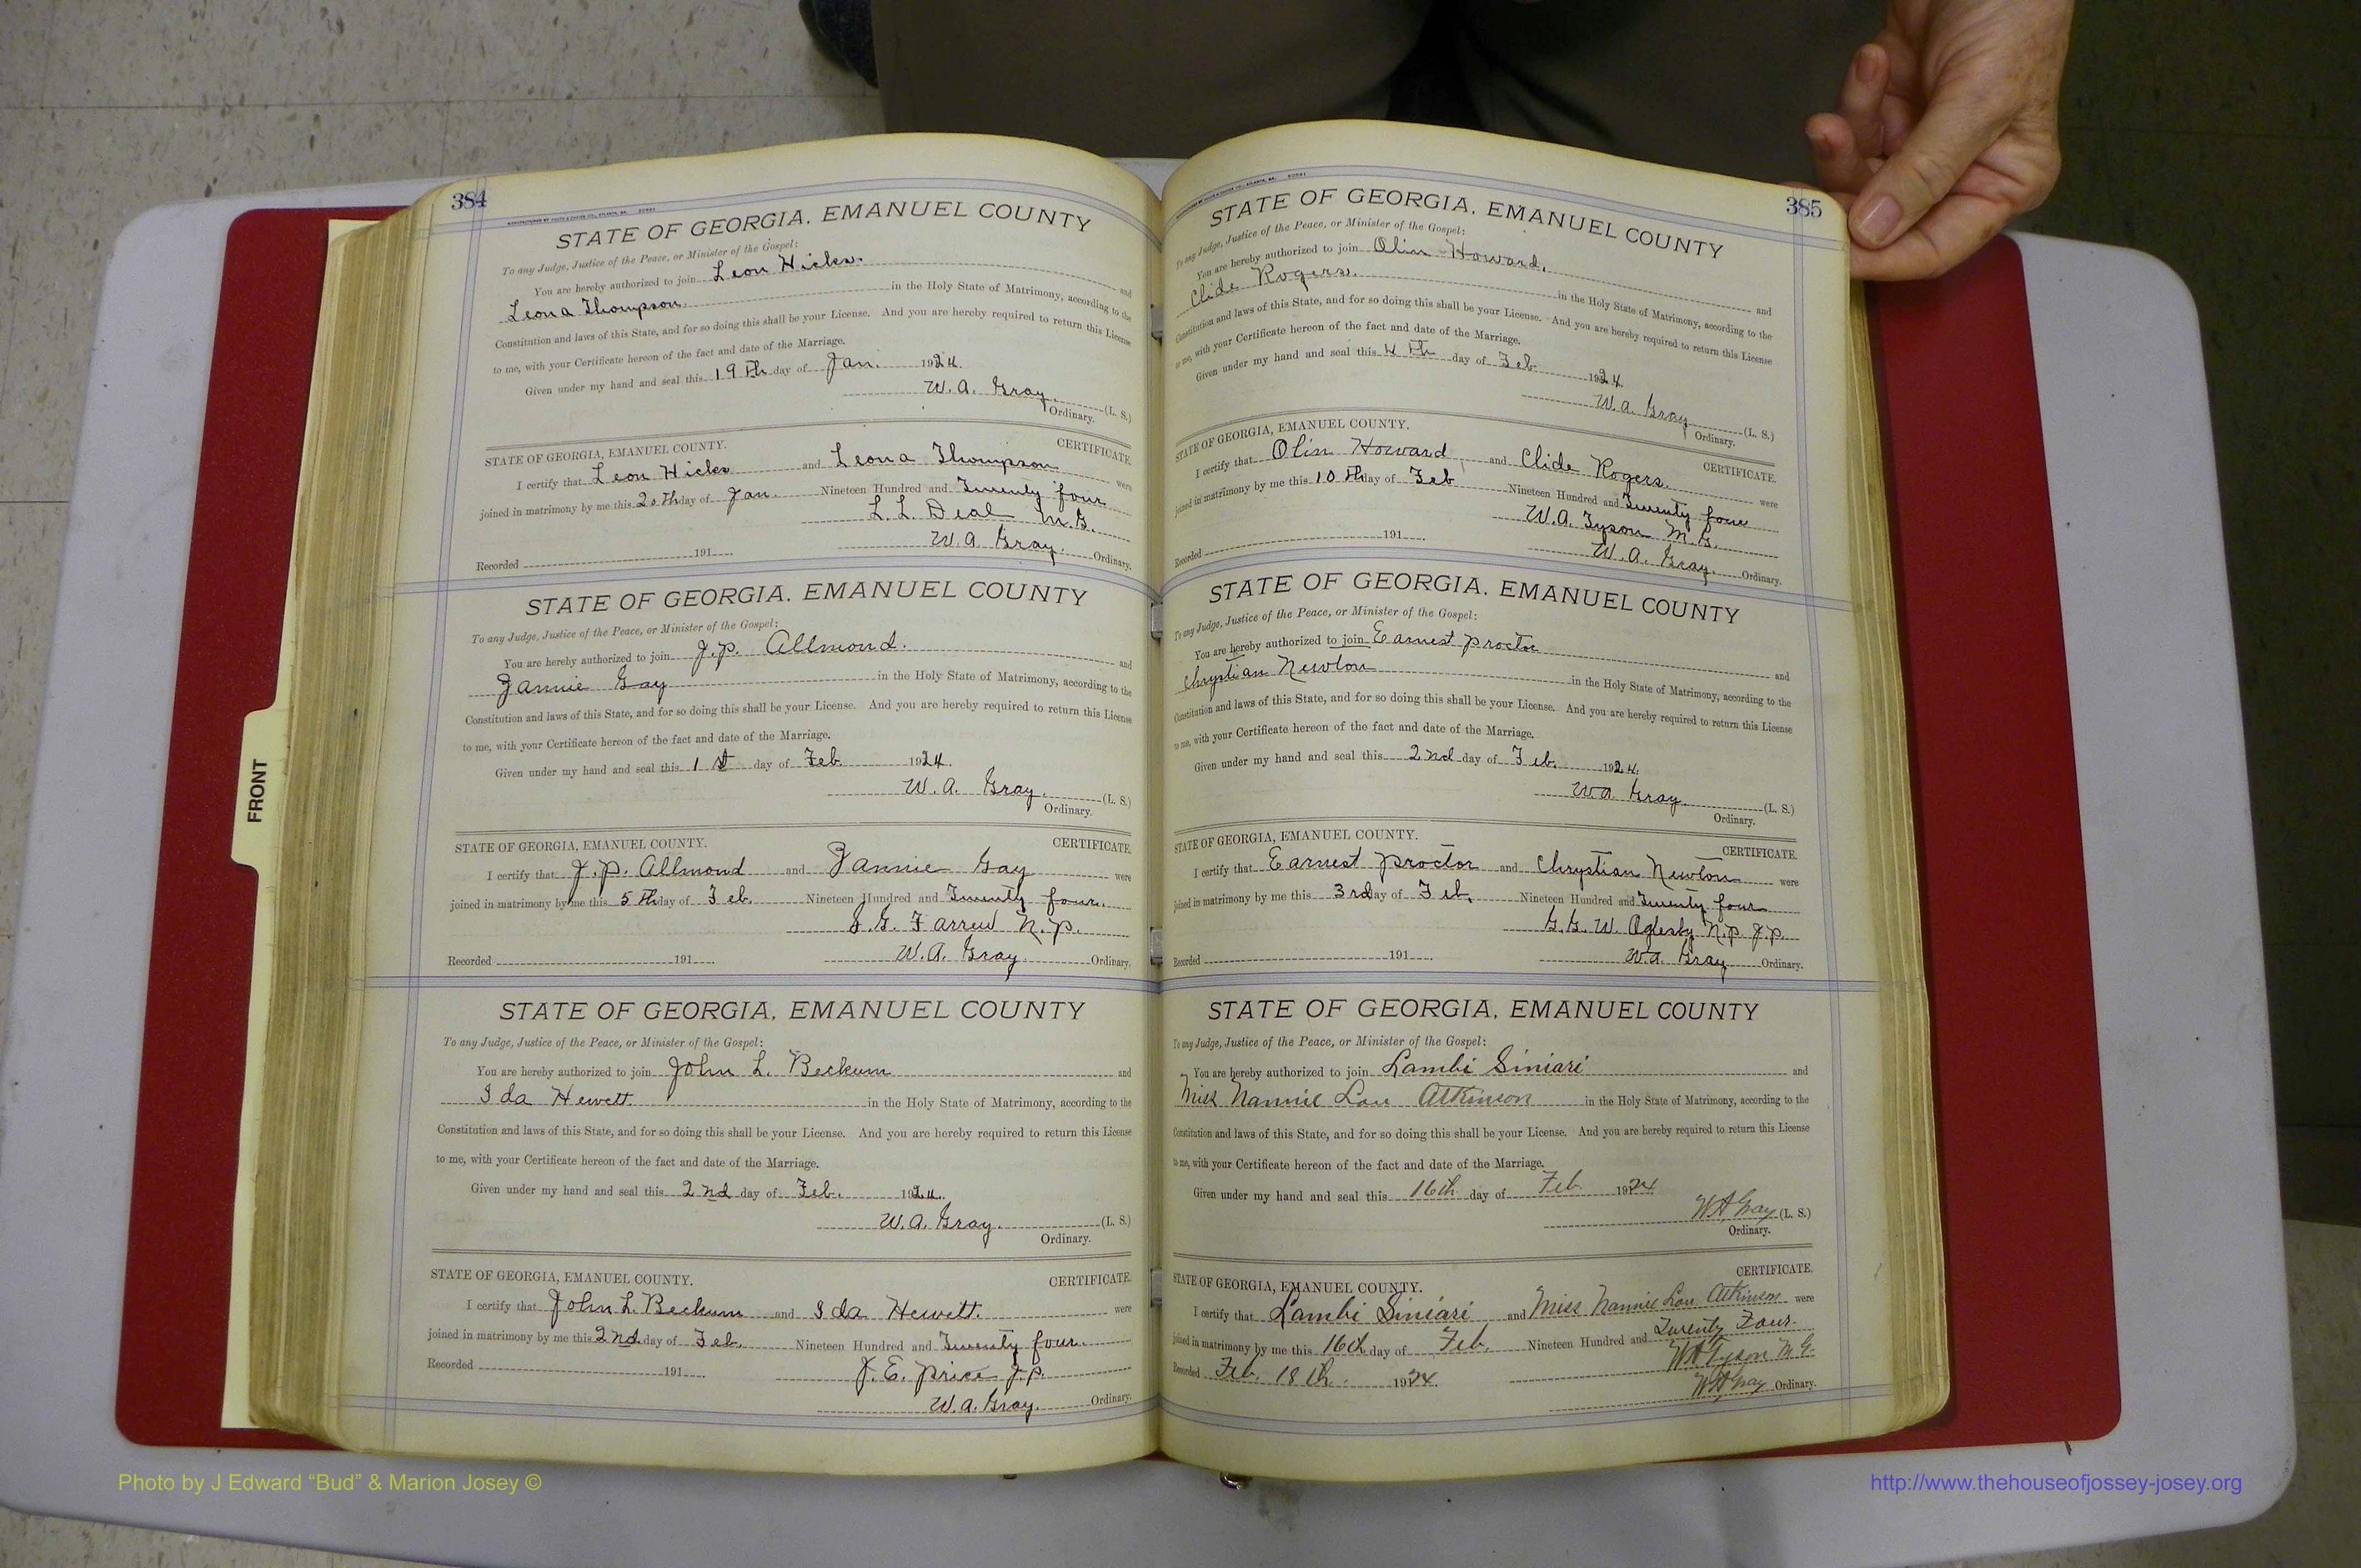 384
STATE OF GEORGIA, EMANUEL COUNTY
To any Judge, Justice of the Peace, or Minister of the Gospel:
You are hereby authorized to join Leon Hicks. and
Leona Thompson. in the Holy State of Matrimony, according to the
Constitution and laws of this State, and for so doing this shall be your License. And you are hereby required to return this License
to me, with your Certificate hereon of the fact and date of the Marriage.
Given under my hand and seal this 19th day of Jan. 1924.
W. A. Gray. (L. S.)
Ordinary.
STATE OF GEORGIA, EMANUEL COUNTY. CERTIFICATE.
I certify that Leon Hicks and Leona Thompson were
joined in matrimony by me this 20th day of Jan. Nineteen Hundred and Twenty four
L. L. Deal M. G.
Recorded 191 W. A Gray. Ordinary.
STATE OF GEORGIA, EMANUEL COUNTY
To any Judge, Justice of the Peace, or Minister of the Gospel:
You are hereby authorized to join J. P. Allmond. and
Fannie Gay in the Holy State of Matrimony, according to the
Constitution and laws of this State, and for so doing this shall be your License. And you are hereby required to return this License
to me, with your Certificate hereon of the fact and date of the Marriage.
Given under my hand and seal this 1st day of Feb. 1924.
W. A. Gray. (L. S.)
Ordinary.
STATE OF GEORGIA, EMANUEL COUNTY. CERTIFICATE.
I certify that J. P. Allmond and Fannie Gay were
joined in matrimony by me this 5th day of Feb. Nineteen Hundred and Twenty four.
G. Farrew N. P.
Recorded 191 W. A. Gray. Ordinary.
STATE OF GEORGIA, EMANUEL COUNTY
To any Judge, Justice of the Peace, or Minister of the Gospel:
You are hereby authorized to join John L. Beckum and
Ida Hewett. in the Holy State of Matrimony, according to the
Constitution and laws of this State, and for so doing this shall be your License. And you are hereby required to return this License
to me, with your Certificate hereon of the fact and date of the Marriage.
Given under my hand and seal this 2nd day of Feb. 1924.
W. A. Gray. (L. S.)
Ordinary.
STATE OF GEORGIA, EMANUEL COUNTY. CERTIFICATE.
I certify that John L. Beckum and Ida Hewett. were
joined in matrimony by me this 2nd. day of Feb. Nineteen Hundred and Twenty four.
Recorded 191 J. E. Price J. P.
W. A. Gray. Ordinary.
385
STATE OF GEORGIA, EMANUEL COUNTY
To any Judge, Justice of the Peace, or Minister of the Gospel:
You are hereby authorized to join Olin Howard. and
Clide Rogers. in the Holy State of Matrimony, according to the
Constitution and laws of this State, and for so doing this shall be your License. And you are hereby required to return this License
to me, with your Certificate hereon of the fact and date of the Marriage.
Given under my hand and seal this 4th day of Feb 1924.
W. A. Gray (L. S.)
Ordinary.
STATE OF GEORGIA, EMANUEL COUNTY. CERTIFICATE.
I certify that Olin Howard and Clide Rogers. were
joined in matrimony by me this 10th day of Feb Nineteen Hundred and Twenty four
W. A. Tyson M. G.
Recorded 191 W. A. Gray. Ordinary.
STATE OF GEORGIA, EMANUEL COUNTY
To any Judge, Justice of the Peace, or Minister of the Gospel:
You are hereby authorized to join Earnest Proctor and
Chrystian Newton in the Holy State of Matrimony, according to the
Constitution and laws of this State, and for so doing this shall be your License. And you are hereby required to return this License
to me, with your Certificate hereon of the fact and date of the Marriage.
Given under my hand and seal this 2nd day of Feb. 1924.
W A Gray. (L. S.)
Ordinary.
STATE OF GEORGIA, EMANUEL COUNTY. CERTIFICATE.
I certify that Earnest Proctor and Chrystian Newton were
joined in matrimony by me this 3rd day of Feb. Nineteen Hundred and Twenty four
G. G. W. Oglesby N. P. J. P.
Recorded 191 W. A. Gray Ordinary.
STATE OF GEORGIA, EMANUEL COUNTY
To any Judge, Justice of the Peace, or Minister of the Gospel:
You are hereby authorized to join Lambi Siniari and
Miss Nannie Lou Atkinson in the Holy State of Matrimony, according to the
Constitution and laws of this State, and for so doing this shall be your License. And you are hereby required to return this License
to me, with your Certificate hereon of the fact and date of the Marriage.
Given under my hand and seal this 16th day of Feb 1924
W A Gray (L. S.)
Ordinary.
STATE OF GEORGIA, EMANUEL COUNTY. CERTIFICATE.
I certify that Lambi Siniari and Miss Nannie Lou Atkinson were
joined in matrimony by me this 16th day of Feb. Nineteen Hundred and Twenty Four.
W A Tyson M. G.
Recorded Feb. 18th. 1924. W A Gray Ordinary.
FRONT
Photo by J Edward “Bud” & Marion Josey ©
http://www.thehouseofjossey-josey.org